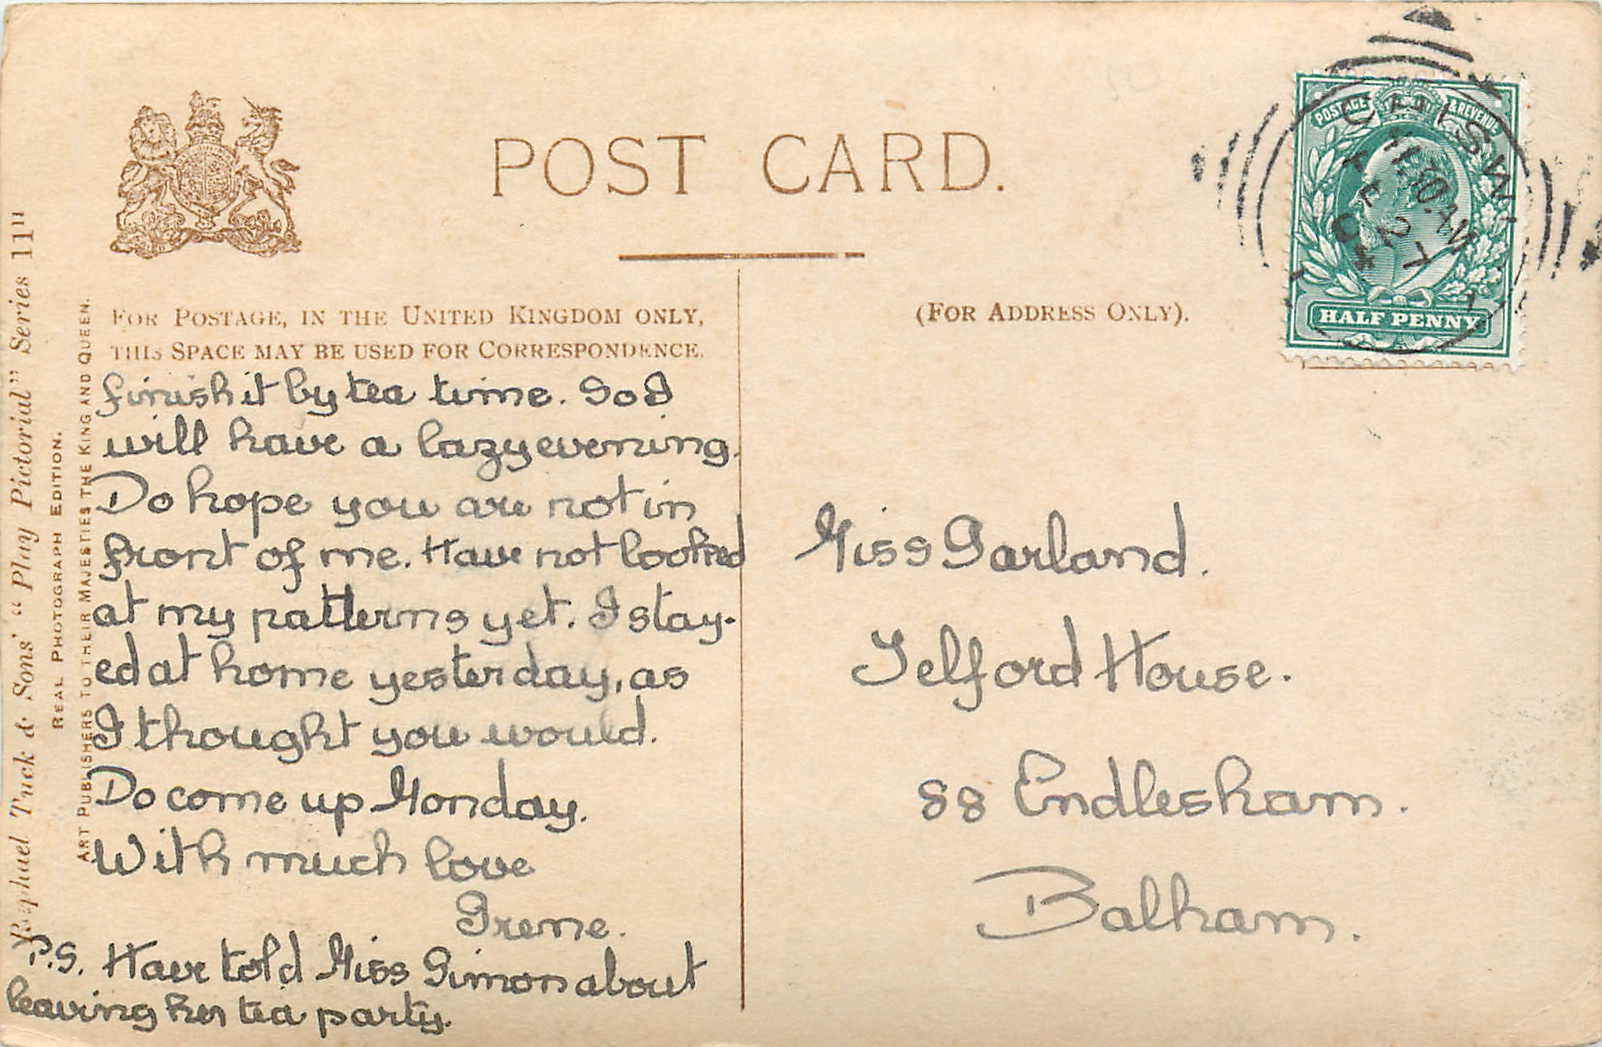 POST CARD.
FOR POSTAGE, IN THE UNITED KINGDOM ONLY,
THIS SPACE MAY BE USED FOR CORRESPONDENCE.
(FOR ADDRESS ONLY).
Raphael Tuck & Sons' "Play Pictorial" Series 11"
REAL PHOTOGRAPH EDITION.
ART PUBLISHERS TO THEIR MAJESTIES THE KING AND QUEEN.
finish it by tea time. So I
will have a lazy evening.
Do hope you are not in
front of me. Have not looked
at my patterns yet. I stay-
ed at home yesterday, as
I thought you would.
Do come up Monday.
With much love
Irene.
P.S. Have told Miss Simon about
leaving her tea party.
Miss Garland.
Telford House.
88 Endlesham.
Balham.
POSTAGE & REVENUE
HALF PENNY
CHISWI
11.30 AM
27
04